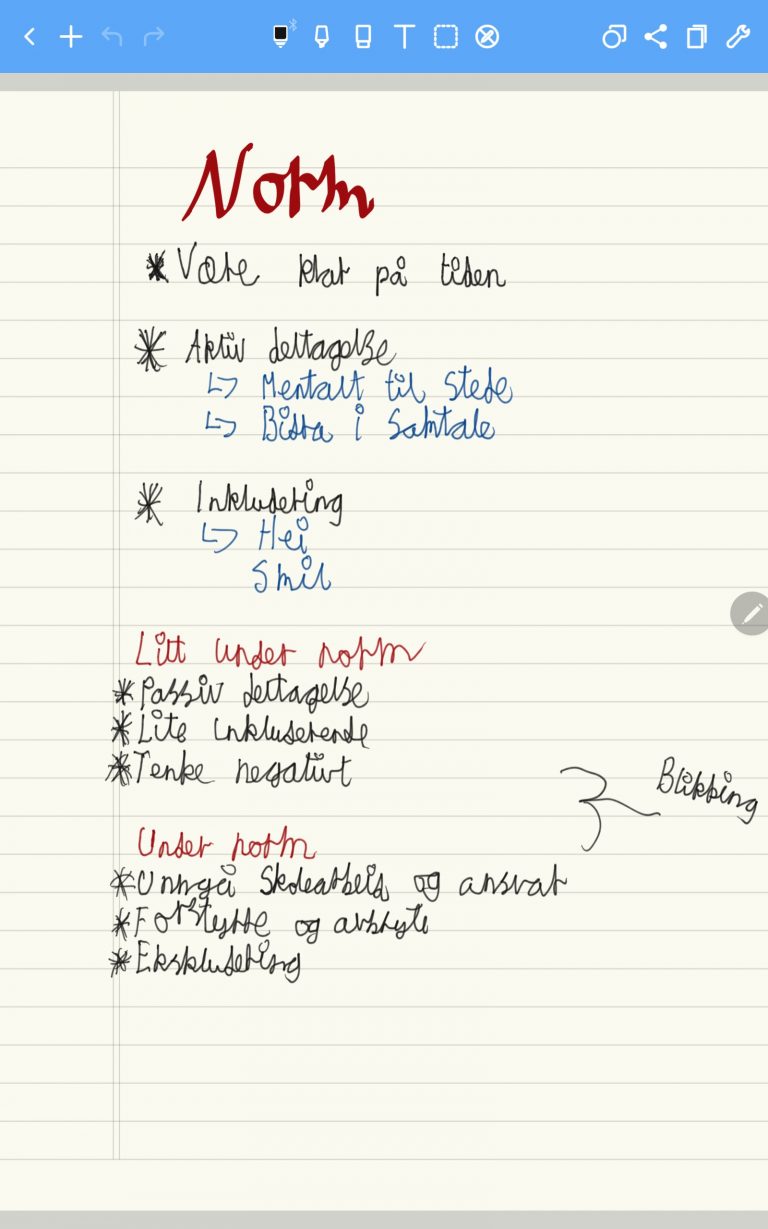 Norm
* Være klar på tiden
* Aktiv deltagelse
↳ Mentalt til stede
↳ Bidra i samtale
* Inkludering
↳ Hei
Smil
Litt under norm
* Passiv deltagelse
* Lite inkluderende
* Tenke negativt
Blikking
Under norm
* Unngå skolearbeid og ansvar
* Forstyrre og avbryte
* Ekskludering